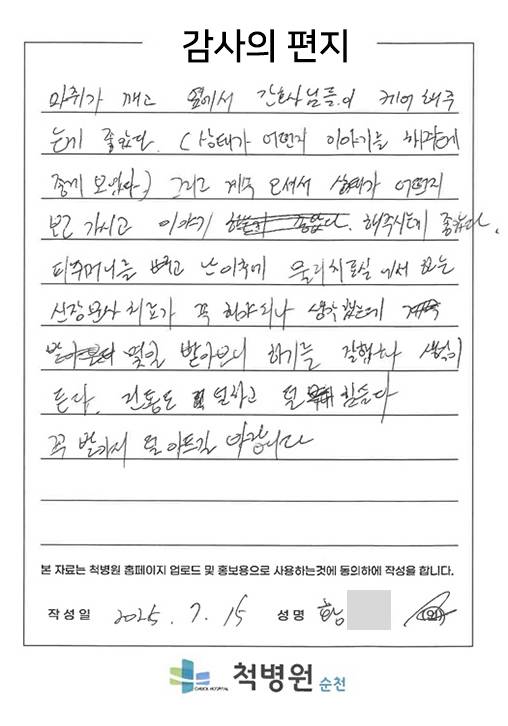 감사의 편지
마취가 깨고 옆에서 간호사님들이 케어해주
는게 좋았다. (상태가 어떤지 이야기를 해주는게
좋게 보였다.) 그리고 계속 오셔서 상태가 어떤지
보고 가시고 이야기 해주시는게 좋았다.
피주머니를 빼고 난 이후에 물리치료실에서 하는
신장분사치료가 꼭 해야되나 생각했는데
몇일 받아보니 하기를 잘했다 생각이
든다. 진통도 덜하고 덜 힘들다
꼭 빨리 덜 아프길 바랍니다
본 자료는 척병원 홈페이지 업로드 및 홍보용으로 사용하는것에 동의하에 작성을 합니다.
작성일 2025. 7. 15 성명 황 (인)
CHEOK HOSPITAL 척병원 순천